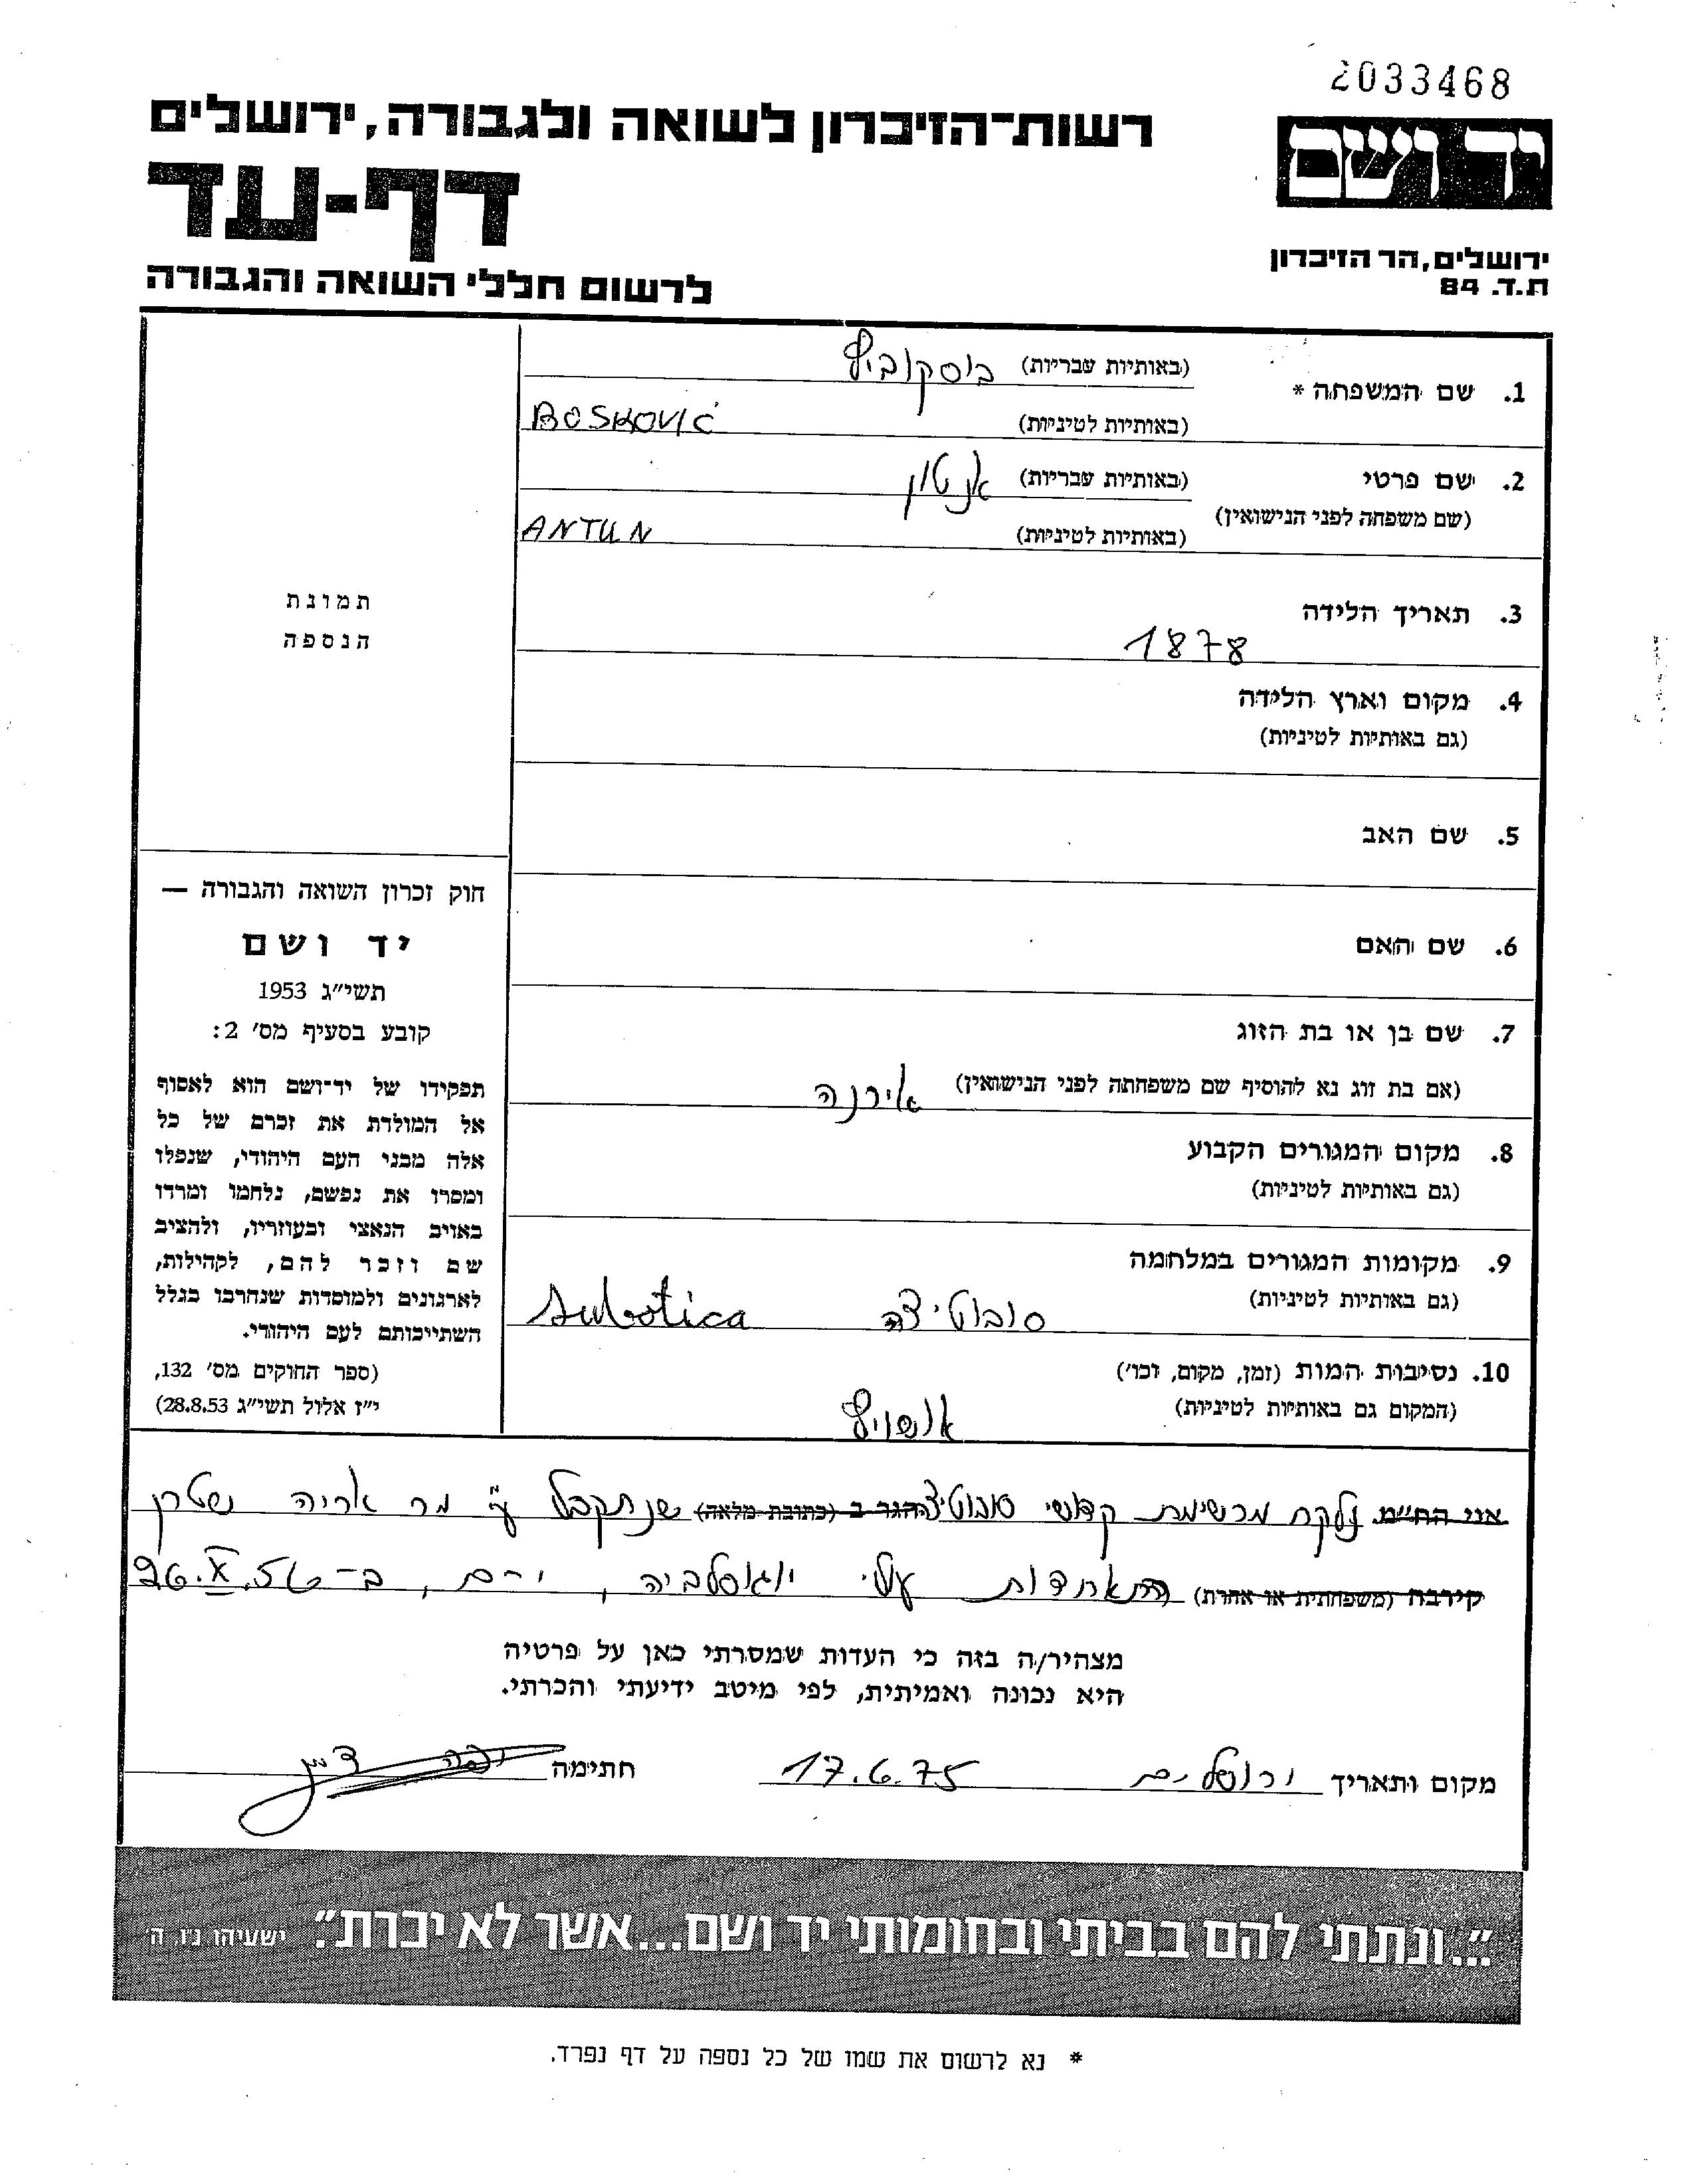 2033468
יד ושם
רשות-הזיכרון לשואה ולגבורה, ירושלים
דף-עד
ירושלים, הר הזיכרון
ת.ד. 84
לרשום חללי השואה והגבורה
1. שם המשפחה *
(באותיות עבריות) בוסקוביץ
(באותיות לטיניות) BOSKOVIĆ
2. שם פרטי
(באותיות עבריות) אנטון
(שם משפחה לפני הנישואין)
(באותיות לטיניות) ANTUN
3. תאריך הלידה
1878
4. מקום וארץ הלידה
(גם באותיות לטיניות)
5. שם האב
6. שם האם
7. שם בן או בת הזוג
(אם בת זוג נא להוסיף שם משפחתה לפני הנישואין) אירנה
8. מקום המגורים הקבוע
(גם באותיות לטיניות)
9. מקומות המגורים במלחמה
(גם באותיות לטיניות)
סובוטיצה Subotica
10. נסיבות המות (זמן, מקום, וכו')
(המקום גם באותיות לטיניות)
אושויץ
תמונת
הנספה
חוק זכרון השואה והגבורה —
יד ושם
תשי"ג 1953
קובע בסעיף מס' 2:
תפקידו של יד-ושם הוא לאסוף
אל המולדת את זכרם של כל
אלה מבני העם היהודי, שנפלו
ומסרו את נפשם, נלחמו ומרדו
באויב הנאצי ובעוזריו, ולהציב
שם וזכר להם, לקהילות,
לארגונים ולמוסדות שנחרבו בגלל
השתייכותם לעם היהודי.
(ספר החוקים מס' 132,
י"ז אלול תשי"ג 28.8.53)
אני הח"מ נלקח מרשימת קדושי סובוטיצה הגר ב (כתובת מלאה) שנתקבל ע"י מר אריה שטרן
קירבה (משפחתית או אחרת) התאחדות עולי יוגוסלביה, י-ם, ב- 26.X.56
מצהיר/ה בזה כי העדות שמסרתי כאן על פרטיה
היא נכונה ואמיתית, לפי מיטב ידיעתי והכרתי.
מקום ותאריך ירושלים 17.6.75 חתימה
"...ונתתי להם בביתי ובחומותי יד ושם...אשר לא יכרת". ישעיהו נ"ו, ה
* נא לרשום את שמו של כל נספה על דף נפרד.